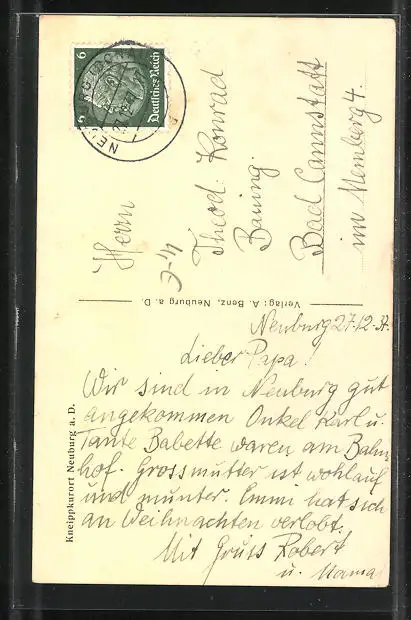 6 6
Deutsches Reich
Herrn
Theod. Konrad
Bad Cannstatt
im Memberg 4.
4,-€
Verlag: A. Benz, Neuburg a. D.
Kneippkurort Neuburg a. D.
Neuburg 27.12.37.
Lieber Papa!
Wir sind in Neuburg gut
angekommen Onkel Karl u.
Tante Babette waren am Bahn-
hof. Grossmutter ist wohlauf
und munter. Emmi hat sich
an Weihnachten verlobt.
Mit Gruss Robert
u. Mama